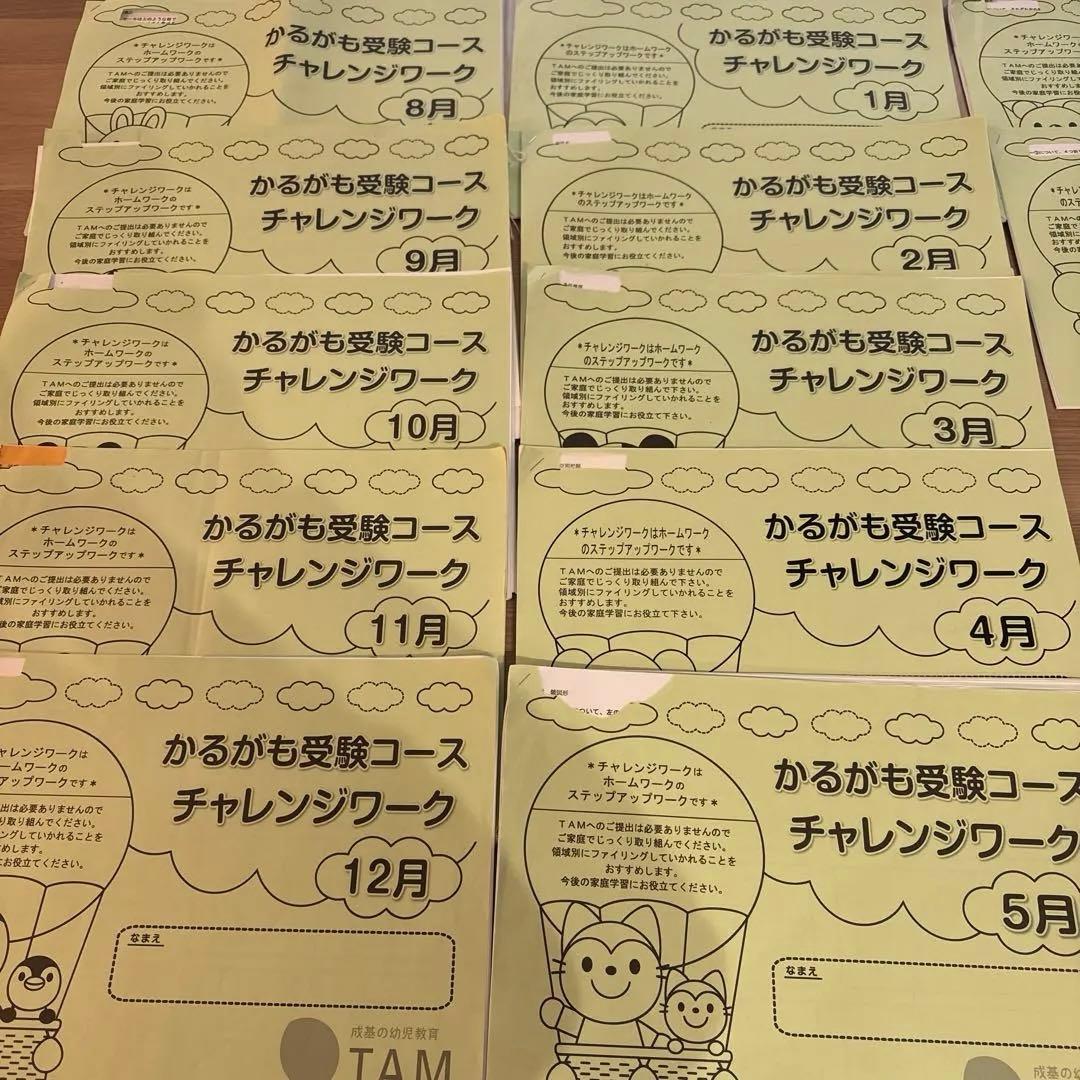 ＊チャレンジワークは
ホームワークの
ステップアップワークです＊
ＴＡＭへのご提出は必要ありませんので
ご家庭でじっくり取り組んでください。
領域別にファイリングしていかれることを
おすすめします。
今後の家庭学習にお役立てください。
かるがも受験コース
チャレンジワーク
8月
＊チャレンジワークはホームワーク
のステップアップワークです＊
ＴＡＭへのご提出は必要ありませんので
ご家庭でじっくり取り組んでください。
領域別にファイリングしていかれることを
おすすめします。
今後の家庭学習にお役立てください。
かるがも受験コース
チャレンジワーク
1月
＊チャレンジワークは
ホームワークの
ステップアップワークです＊
ＴＡＭへのご提出は必要ありませんので
ご家庭でじっくり取り組んでください。
領域別にファイリングしていかれることを
おすすめします。
今後の家庭学習にお役立てください。
かるがも受験コース
チャレンジワーク
9月
＊チャレンジワークはホームワーク
のステップアップワークです＊
ＴＡＭへのご提出は必要ありませんので
ご家庭でじっくり取り組んでください。
領域別にファイリングしていかれることを
おすすめします。
今後の家庭学習にお役立てください。
かるがも受験コース
チャレンジワーク
2月
＊チャレンジワークは
ホームワークの
ステップアップワークです＊
ＴＡＭへのご提出は必要ありませんので
ご家庭でじっくり取り組んでください。
領域別にファイリングしていかれることを
おすすめします。
今後の家庭学習にお役立てください。
かるがも受験コース
チャレンジワーク
10月
＊チャレンジワークはホームワーク
のステップアップワークです＊
ＴＡＭへのご提出は必要ありませんので
ご家庭でじっくり取り組んでください。
領域別にファイリングしていかれることを
おすすめします。
今後の家庭学習にお役立て下さい。
かるがも受験コース
チャレンジワーク
3月
＊チャレンジワークは
ホームワークの
ステップアップワークです＊
ＴＡＭへのご提出は必要ありませんので
ご家庭でじっくり取り組んでください。
域別にファイリングしていかれることを
おすすめします。
後の家庭学習にお役立てください。
かるがも受験コース
チャレンジワーク
11月
＊チャレンジワークはホームワーク
のステップアップワークです＊
ＴＡＭへのご提出は必要ありませんので
ご家庭でじっくり取り組んで下さい。
領域別にファイリングしていかれることを
おすすめします。
今後の家庭学習にお役立て下さい。
かるがも受験コース
チャレンジワーク
4月
ャレンジワークは
ームワークの
アップワークです＊
出は必要ありませんので
り取り組んでください。
リングしていかれることを
めします。
にお役立てください。
かるがも受験コース
チャレンジワーク
12月
なまえ
成基の幼児教育
TAM
＊チャレンジワークは
ホームワークの
ステップアップワークです＊
ＴＡＭへのご提出は必要ありませんので
ご家庭でじっくり取り組んでください。
領域別にファイリングしていかれることを
おすすめします。
今後の家庭学習にお役立てください。
かるがも受験コース
チャレンジワーク
5月
なまえ
成基の幼